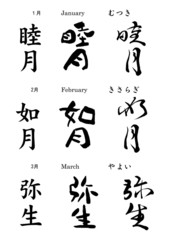 1月 January むつき
睦月 睦月 睦月
2月 February きさらぎ
如月 如月 如月
3月 March やよい
弥生 弥生 弥生